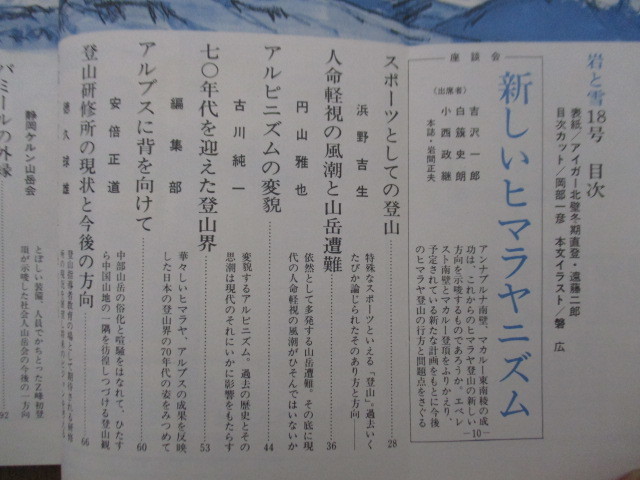 岩と雪18号 目次
表紙／アイガー北壁冬期直登・遠藤二郎
目次カット／岡部一彦 本文イラスト／磐 広
座談会
新しいヒマラヤニズム
(出席者)
吉沢一郎
白籏史朗
小西政継
本誌・岩間正夫
アンナプルナ南壁、マカルー東南稜の成
功は、これからのヒマラヤ登山の新しい
方向を示唆するものであろうか。エベレ
スト南壁とマカルー登頂をふりかえり、
予定されている新たな計画をもとに今後
のヒマラヤ登山の行方と問題点をさぐる
―10―
スポーツとしての登山
浜野吉生
特殊なスポーツといえる「登山」。過去いく
たびか論じられたそのあり方と方向――
28
人命軽視の風潮と山岳遭難
円山雅也
依然として多発する山岳遭難。その底に現
代の人命軽視の風潮がひそんではいないか
36
アルピニズムの変貌
古川純一
変貌するアルピニズム。過去の歴史とその
思潮は現代のそれにいかに影響をもたらす
44
七〇年代を迎えた登山界
編集部
華々しいヒマラヤ、アルプスの成果を反映
した日本の登山界の70年代の姿をみつめて
53
アルプスに背を向けて
安倍正道
中部山岳の俗化と喧騒をはなれて、ひたす
ら中国山地の一隅を彷徨しつづける登山観
60
登山研修所の現状と今後の方向
徳久球雄
66
パミールの外縁
静岡ケルン山岳会
とぼしい装備、人員でかちとったZ峰初登
頂が示唆した社会人山岳会の今後の一方向
92